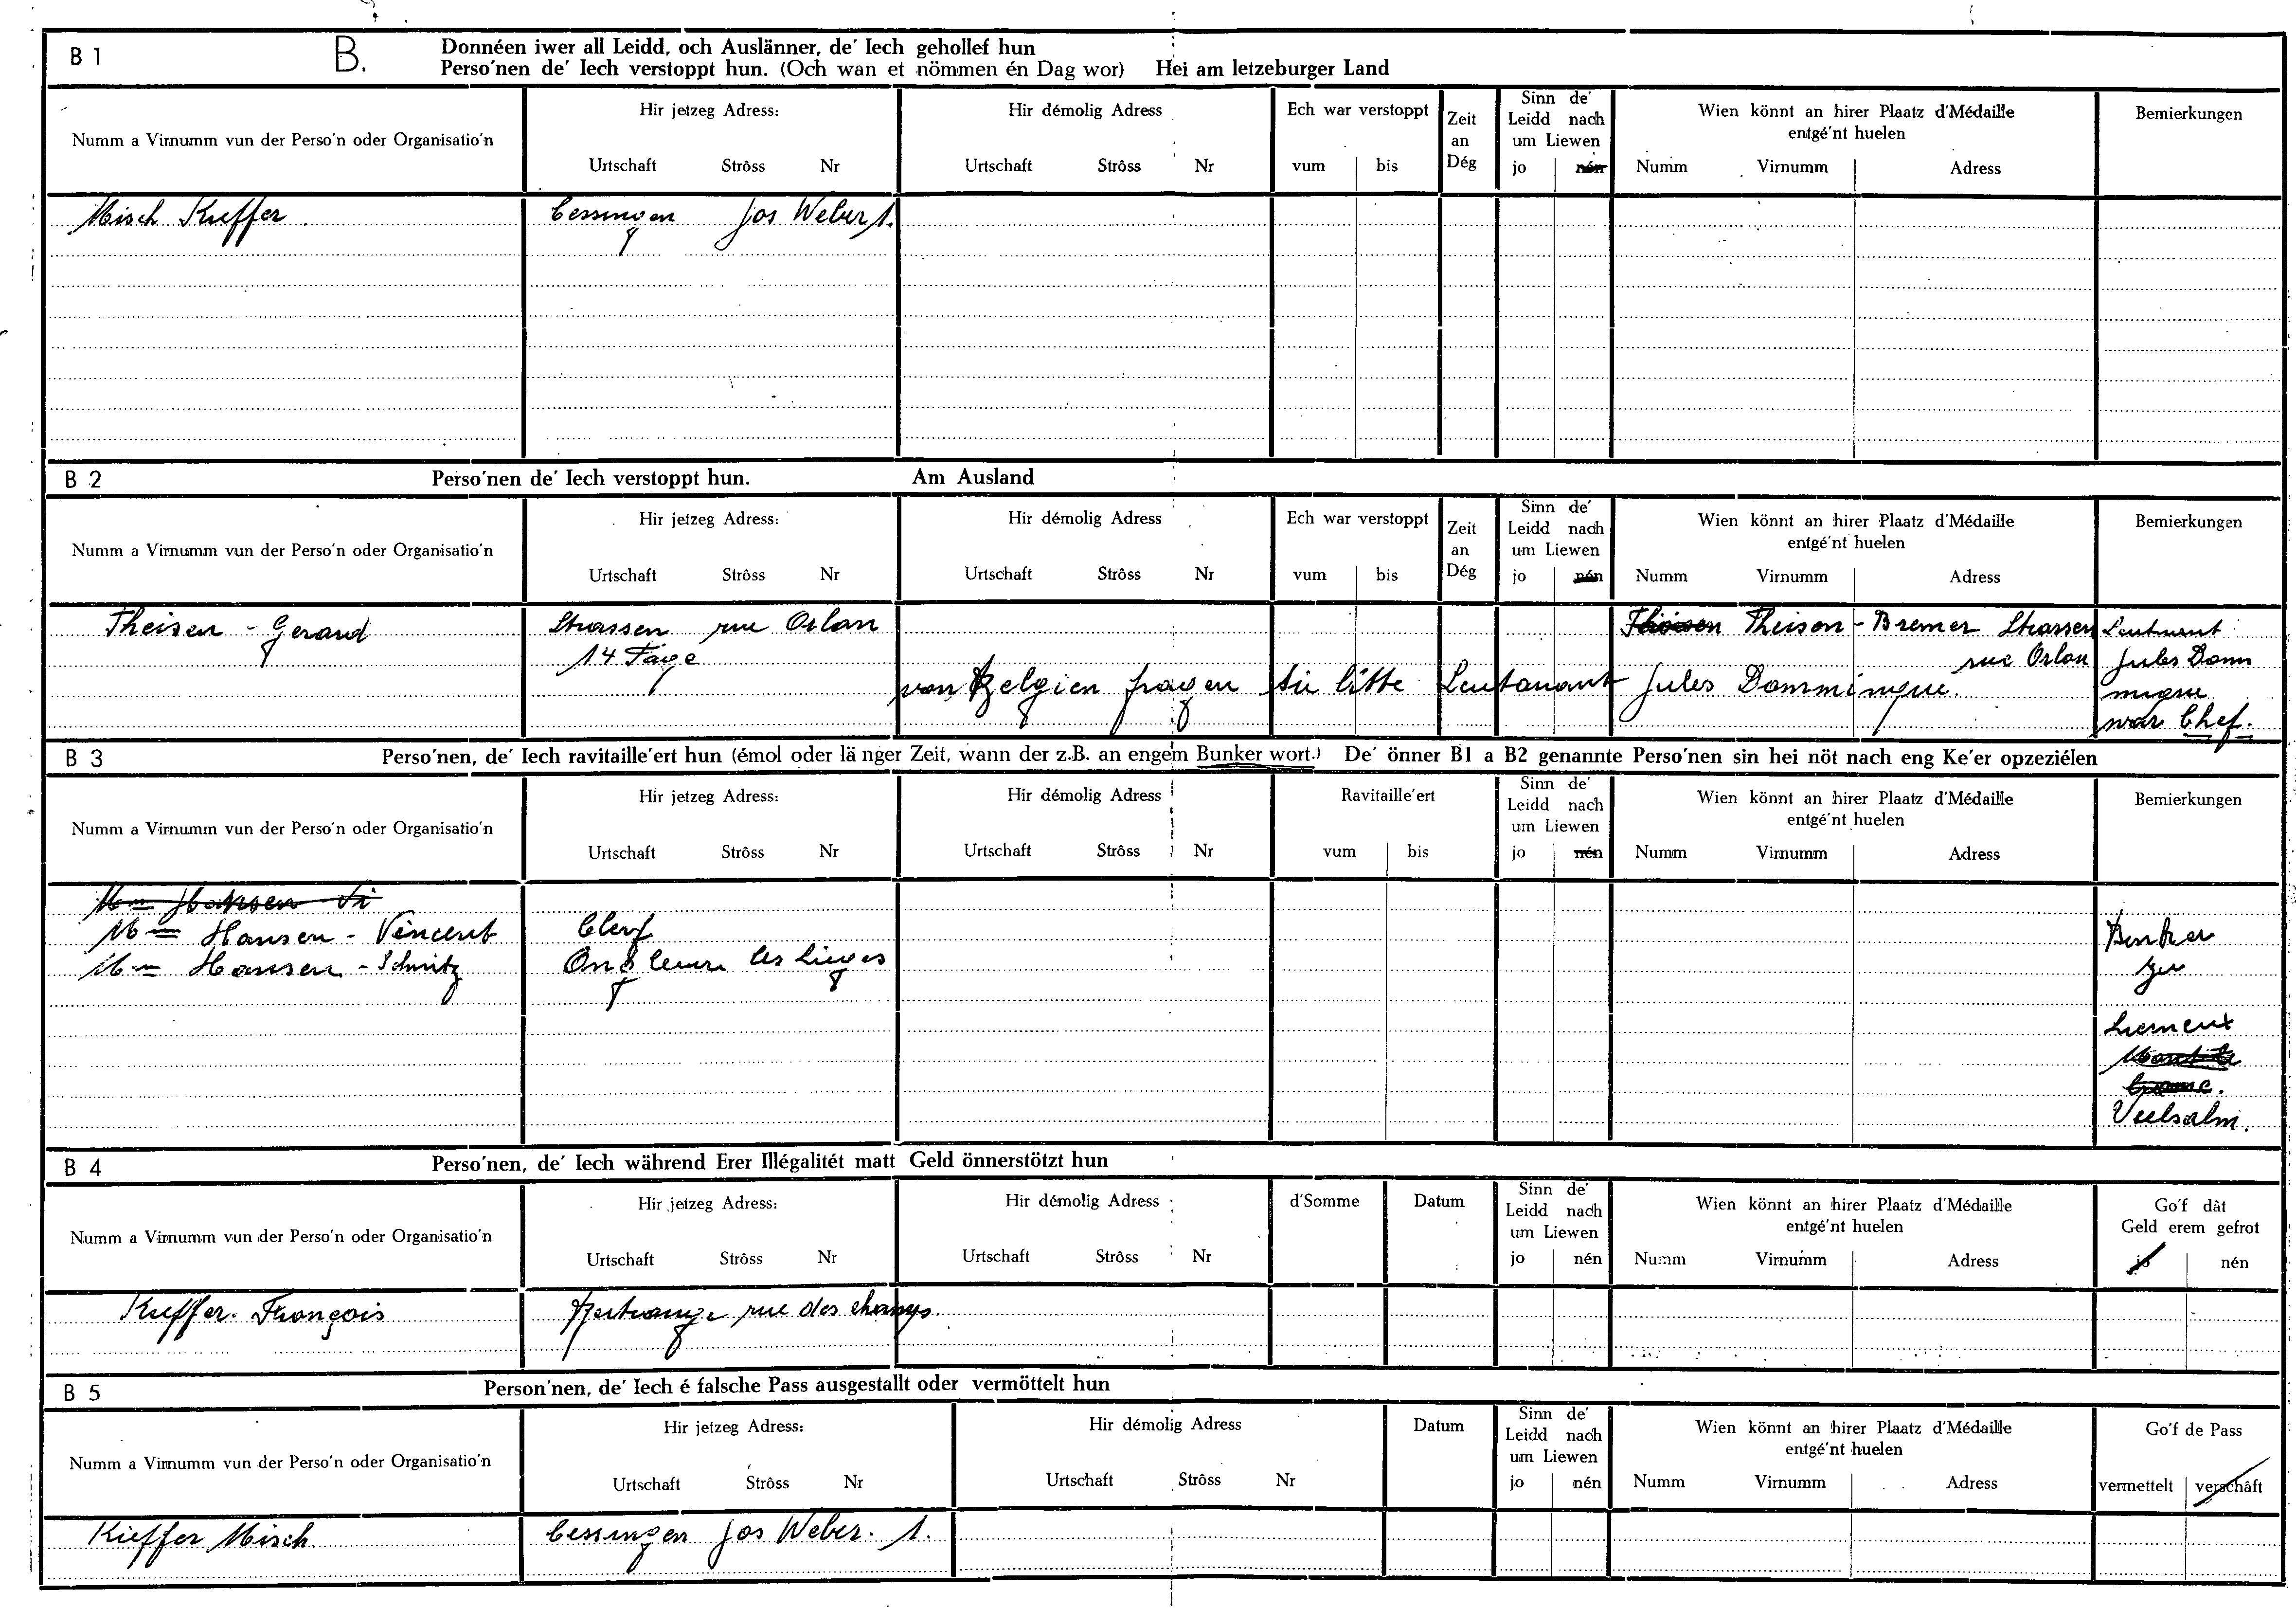 B 1 B. Donnéen iwer all Leidd, och Auslänner, de' Iech gehollef hun
Perso'nen de' Iech verstoppt hun. (Och wan et nömmen én Dag wor) Hei am letzeburger Land
Numm a Virnumm vun der Perso'n oder Organisatio'n
Hir jetzeg Adress:
Urtschaft Strôss Nr
Hir démolig Adress
Urtschaft Strôss Nr
Ech war verstoppt
vum bis
Zeit
an
Dég
Sinn de'
Leidd nach
um Liewen
jo nén
Wien könnt an hirer Plaatz d'Médaille
entgé'nt huelen
Numm Virnumm Adress
Bemierkungen
Misch Kieffer Cessingen Jos Weber 1.
B 2 Perso'nen de' Iech verstoppt hun. Am Ausland
Numm a Virnumm vun der Perso'n oder Organisatio'n
Hir jetzeg Adress:
Urtschaft Strôss Nr
Hir démolig Adress
Urtschaft Strôss Nr
Ech war verstoppt
vum bis
Zeit
an
Dég
Sinn de'
Leidd nach
um Liewen
jo nén
Wien könnt an hirer Plaatz d'Médaille
entgé'nt huelen
Numm Virnumm Adress
Bemierkungen
Theisen - Gerard Strassen rue Orlan Theisen - Bremer Strassen Leutnant
14 Tage rue Orlan Jules Dom
von Belgien fragen Sie bitte Leutanant Jules Domminique. mique
war Chef.
B 3 Perso'nen, de' Iech ravitaille'ert hun (émol oder länger Zeit, wann der z.B. an engem Bunker wort.) De' önner B1 a B2 genannte Perso'nen sin hei nöt nach eng Ke'er opzeziélen
Numm a Virnumm vun der Perso'n oder Organisatio'n
Hir jetzeg Adress:
Urtschaft Strôss Nr
Hir démolig Adress
Urtschaft Strôss Nr
Ravitaille'ert
vum bis
Sinn de'
Leidd nach
um Liewen
jo nén
Wien könnt an hirer Plaatz d'Médaille
entgé'nt huelen
Numm Virnumm Adress
Bemierkungen
Mme Hansen Vi
Mme Hansen - Vincent Clerf Bunker
Mme Hansen - Schmitz Les Lieges
Lierneux
Vielsalm.
B 4 Perso'nen, de' Iech während Erer Illégalitét matt Geld önnerstötzt hun
Numm a Virnumm vun der Perso'n oder Organisatio'n
Hir jetzeg Adress:
Urtschaft Strôss Nr
Hir démolig Adress
Urtschaft Strôss Nr
d'Somme
Datum
Sinn de'
Leidd nach
um Liewen
jo nén
Wien könnt an hirer Plaatz d'Médaille
entgé'nt huelen
Numm Virnumm Adress
Go'f dât
Geld erem gefrot
jo nén
Kieffer. François Bertrange rue des champs
B 5 Person'nen, de' Iech é falsche Pass ausgestallt oder vermöttelt hun
Numm a Virnumm vun der Perso'n oder Organisatio'n
Hir jetzeg Adress:
Urtschaft Strôss Nr
Hir démolig Adress
Urtschaft Strôss Nr
Datum
Sinn de'
Leidd nach
um Liewen
jo nén
Wien könnt an hirer Plaatz d'Médaille
entgé'nt huelen
Numm Virnumm Adress
Go'f de Pass
vermettelt verschâft
Kieffer Misch. Cessingen Jos Weber. 1.